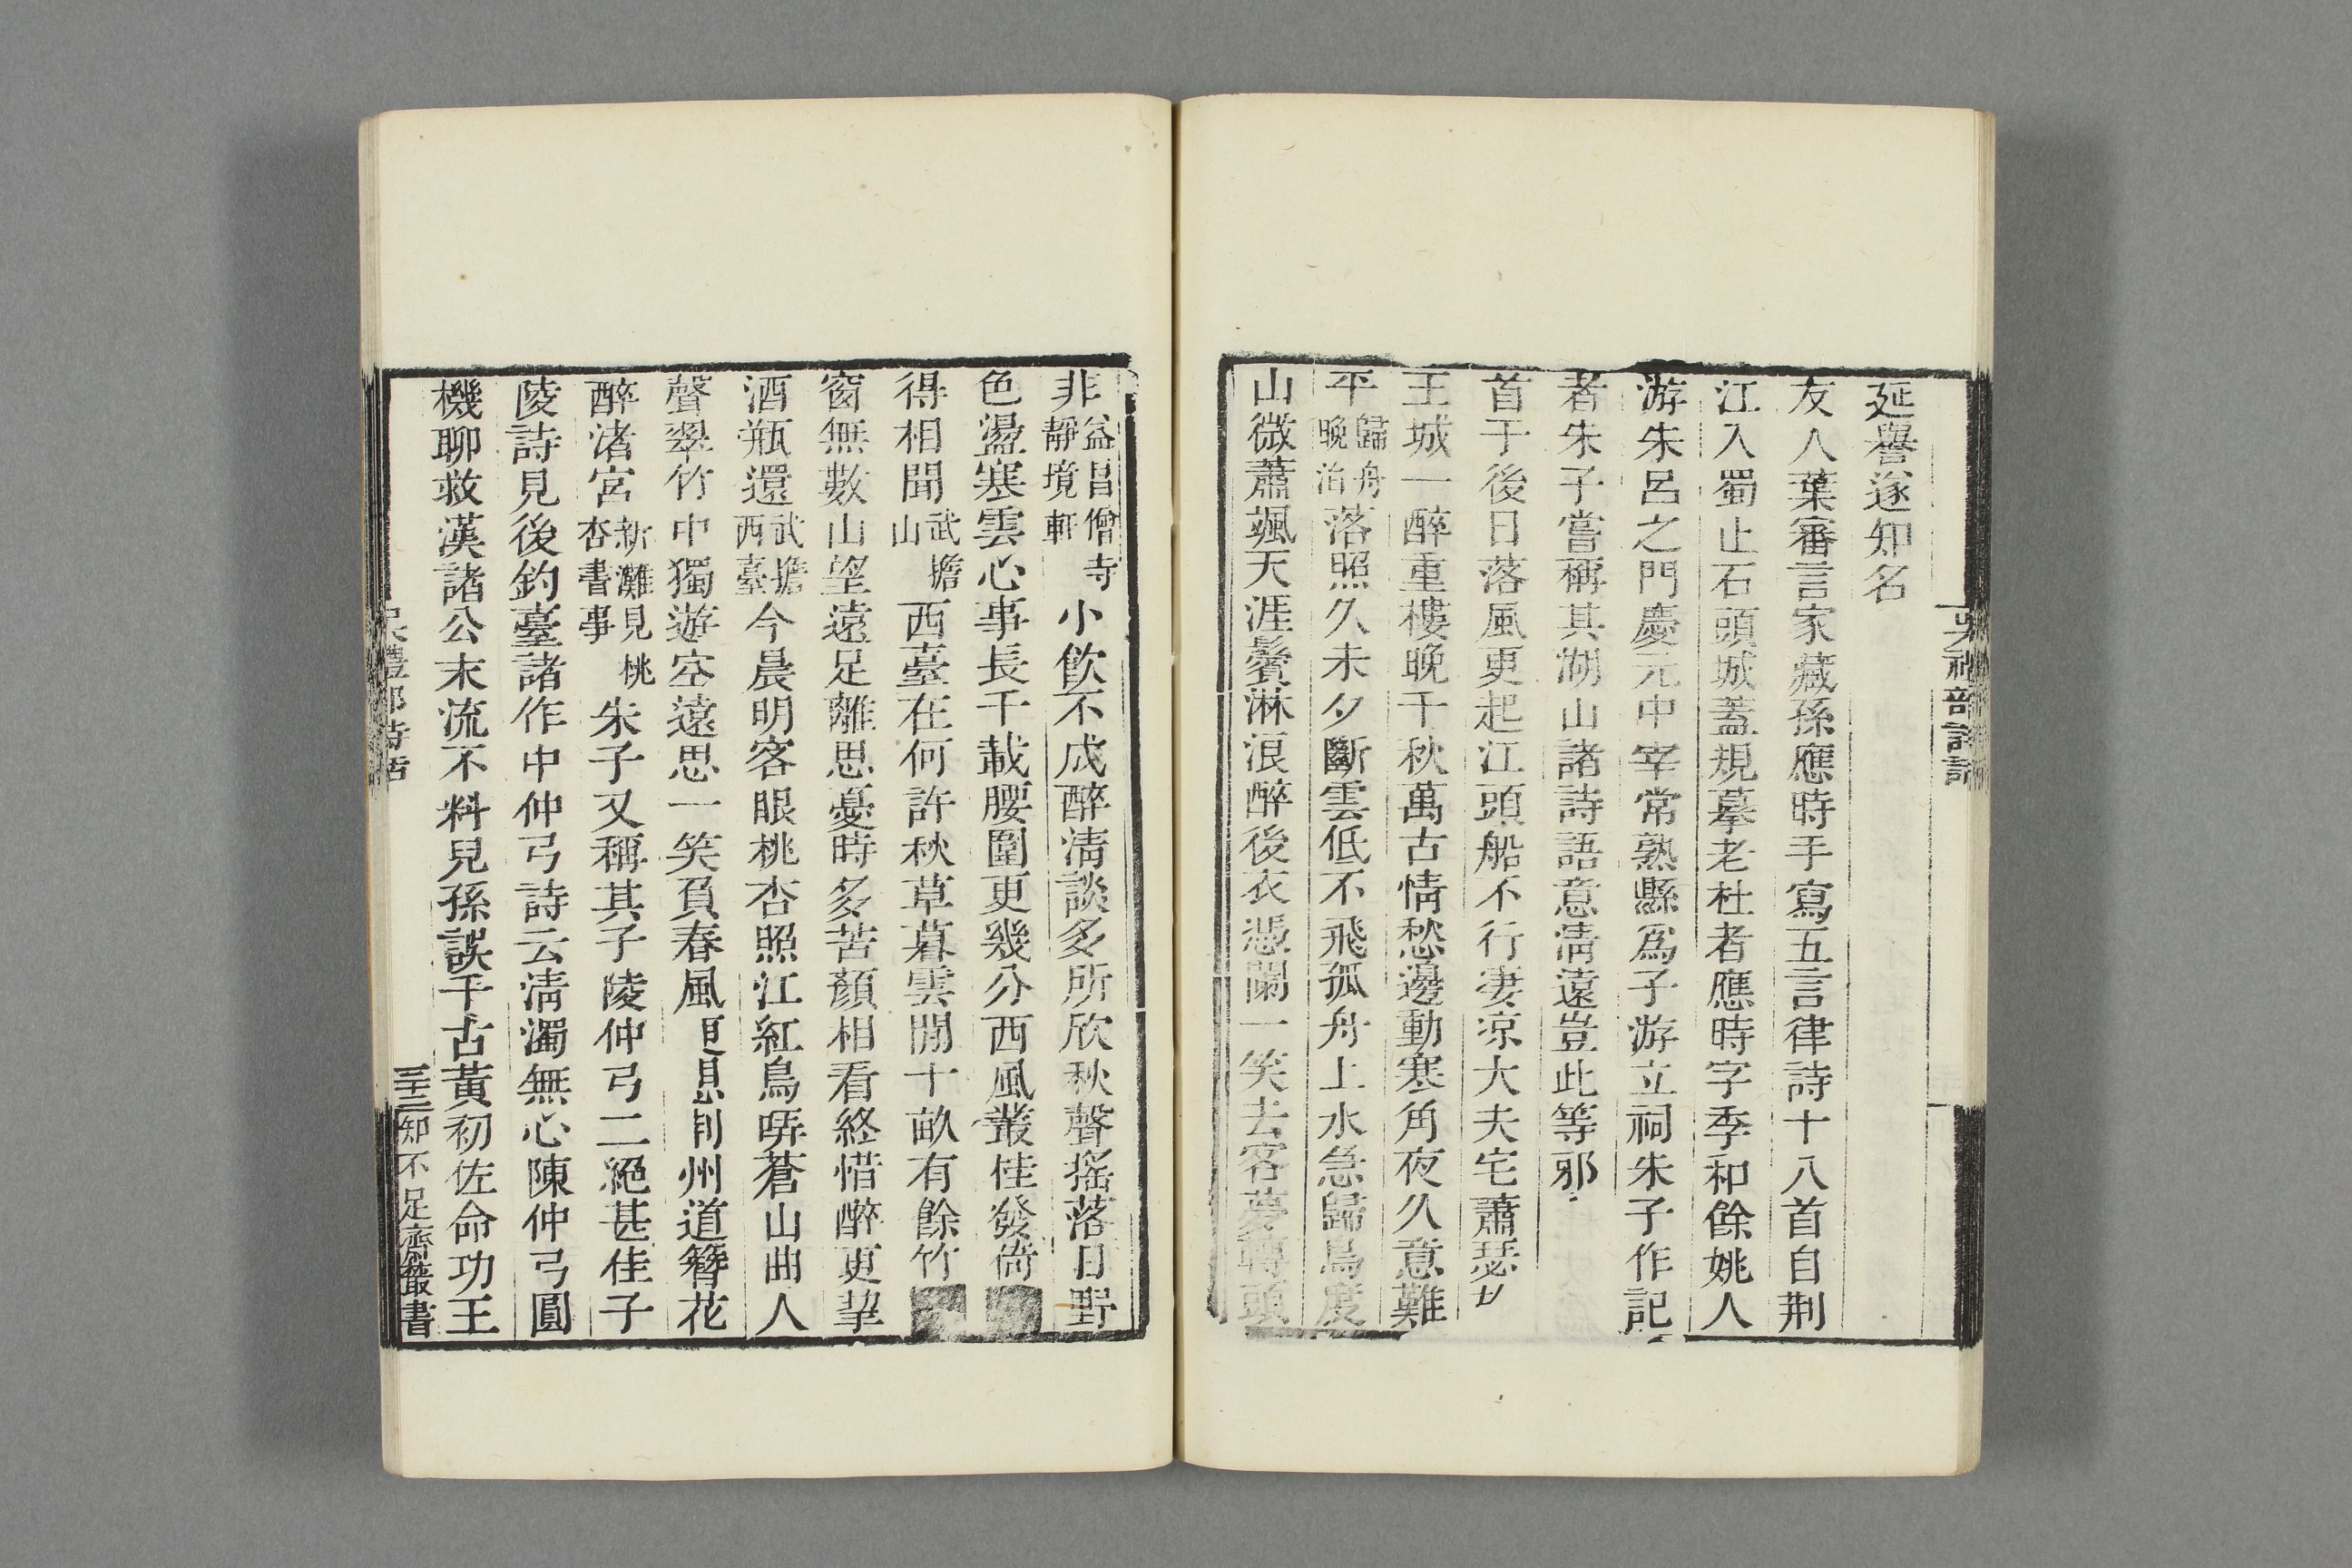 延譽遂知名
友人葉審言家藏孫應時手寫五言律詩十八首自荆
江入蜀止石頭城蓋規摹老杜者應時字季和餘姚人
游朱呂之門慶元中宰常熟縣爲子游立祠朱子作記
者朱子嘗稱其湖山諸詩語意淸遠豈此等邪
首于後日落風更起江頭船不行妻凉大夫宅蕭瑟
王城一醉重樓晚千秋萬古情愁邊動寒角夜久意難
平歸舟晚泊落照久未夕斷雲低不飛孤舟上水急歸鳥度
山微蕭颯天涯鬢淋浪醉後衣憑闌一笑去客夢轉頭
非益昌僧寺靜境軒小飮不成醉淸談多所欣秋聲搖落日野
色盪寒雲心事長千載腰圍更幾分西風叢桂發尙
得相聞武擔山西臺在何許秋草暮雲開十畝有餘竹
窗無數山望遠足離思憂時多苦顏相看終惜醉更挈
酒瓶還武擔西臺今晨明客眼桃杏照江紅鳥哢蒼山曲人
聲翠竹中獨遊空遠思一笑負春風 州道簪花
醉渚宮新灘見桃杏書事朱子又稱其子陵仲弓二絕甚佳子
陵詩見後釣臺諸作中仲弓詩云淸濁無心陳仲弓圓
機聊救漢諸公末流不料兒孫誤千古黃初佐命功王
三十三
知不足齋叢書